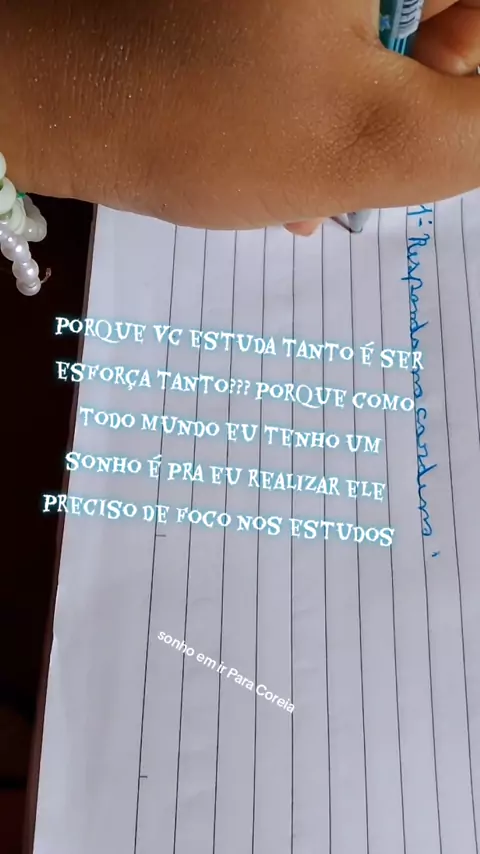 1- Responda no caderno:
PORQUE VC ESTUDA TANTO É SER
ESFORÇA TANTO??? PORQUE COMO
TODO MUNDO EU TENHO UM
SONHO É PRA EU REALIZAR ELE
PRECISO DE FOCO NOS ESTUDOS
sonho em ir Para Coreia